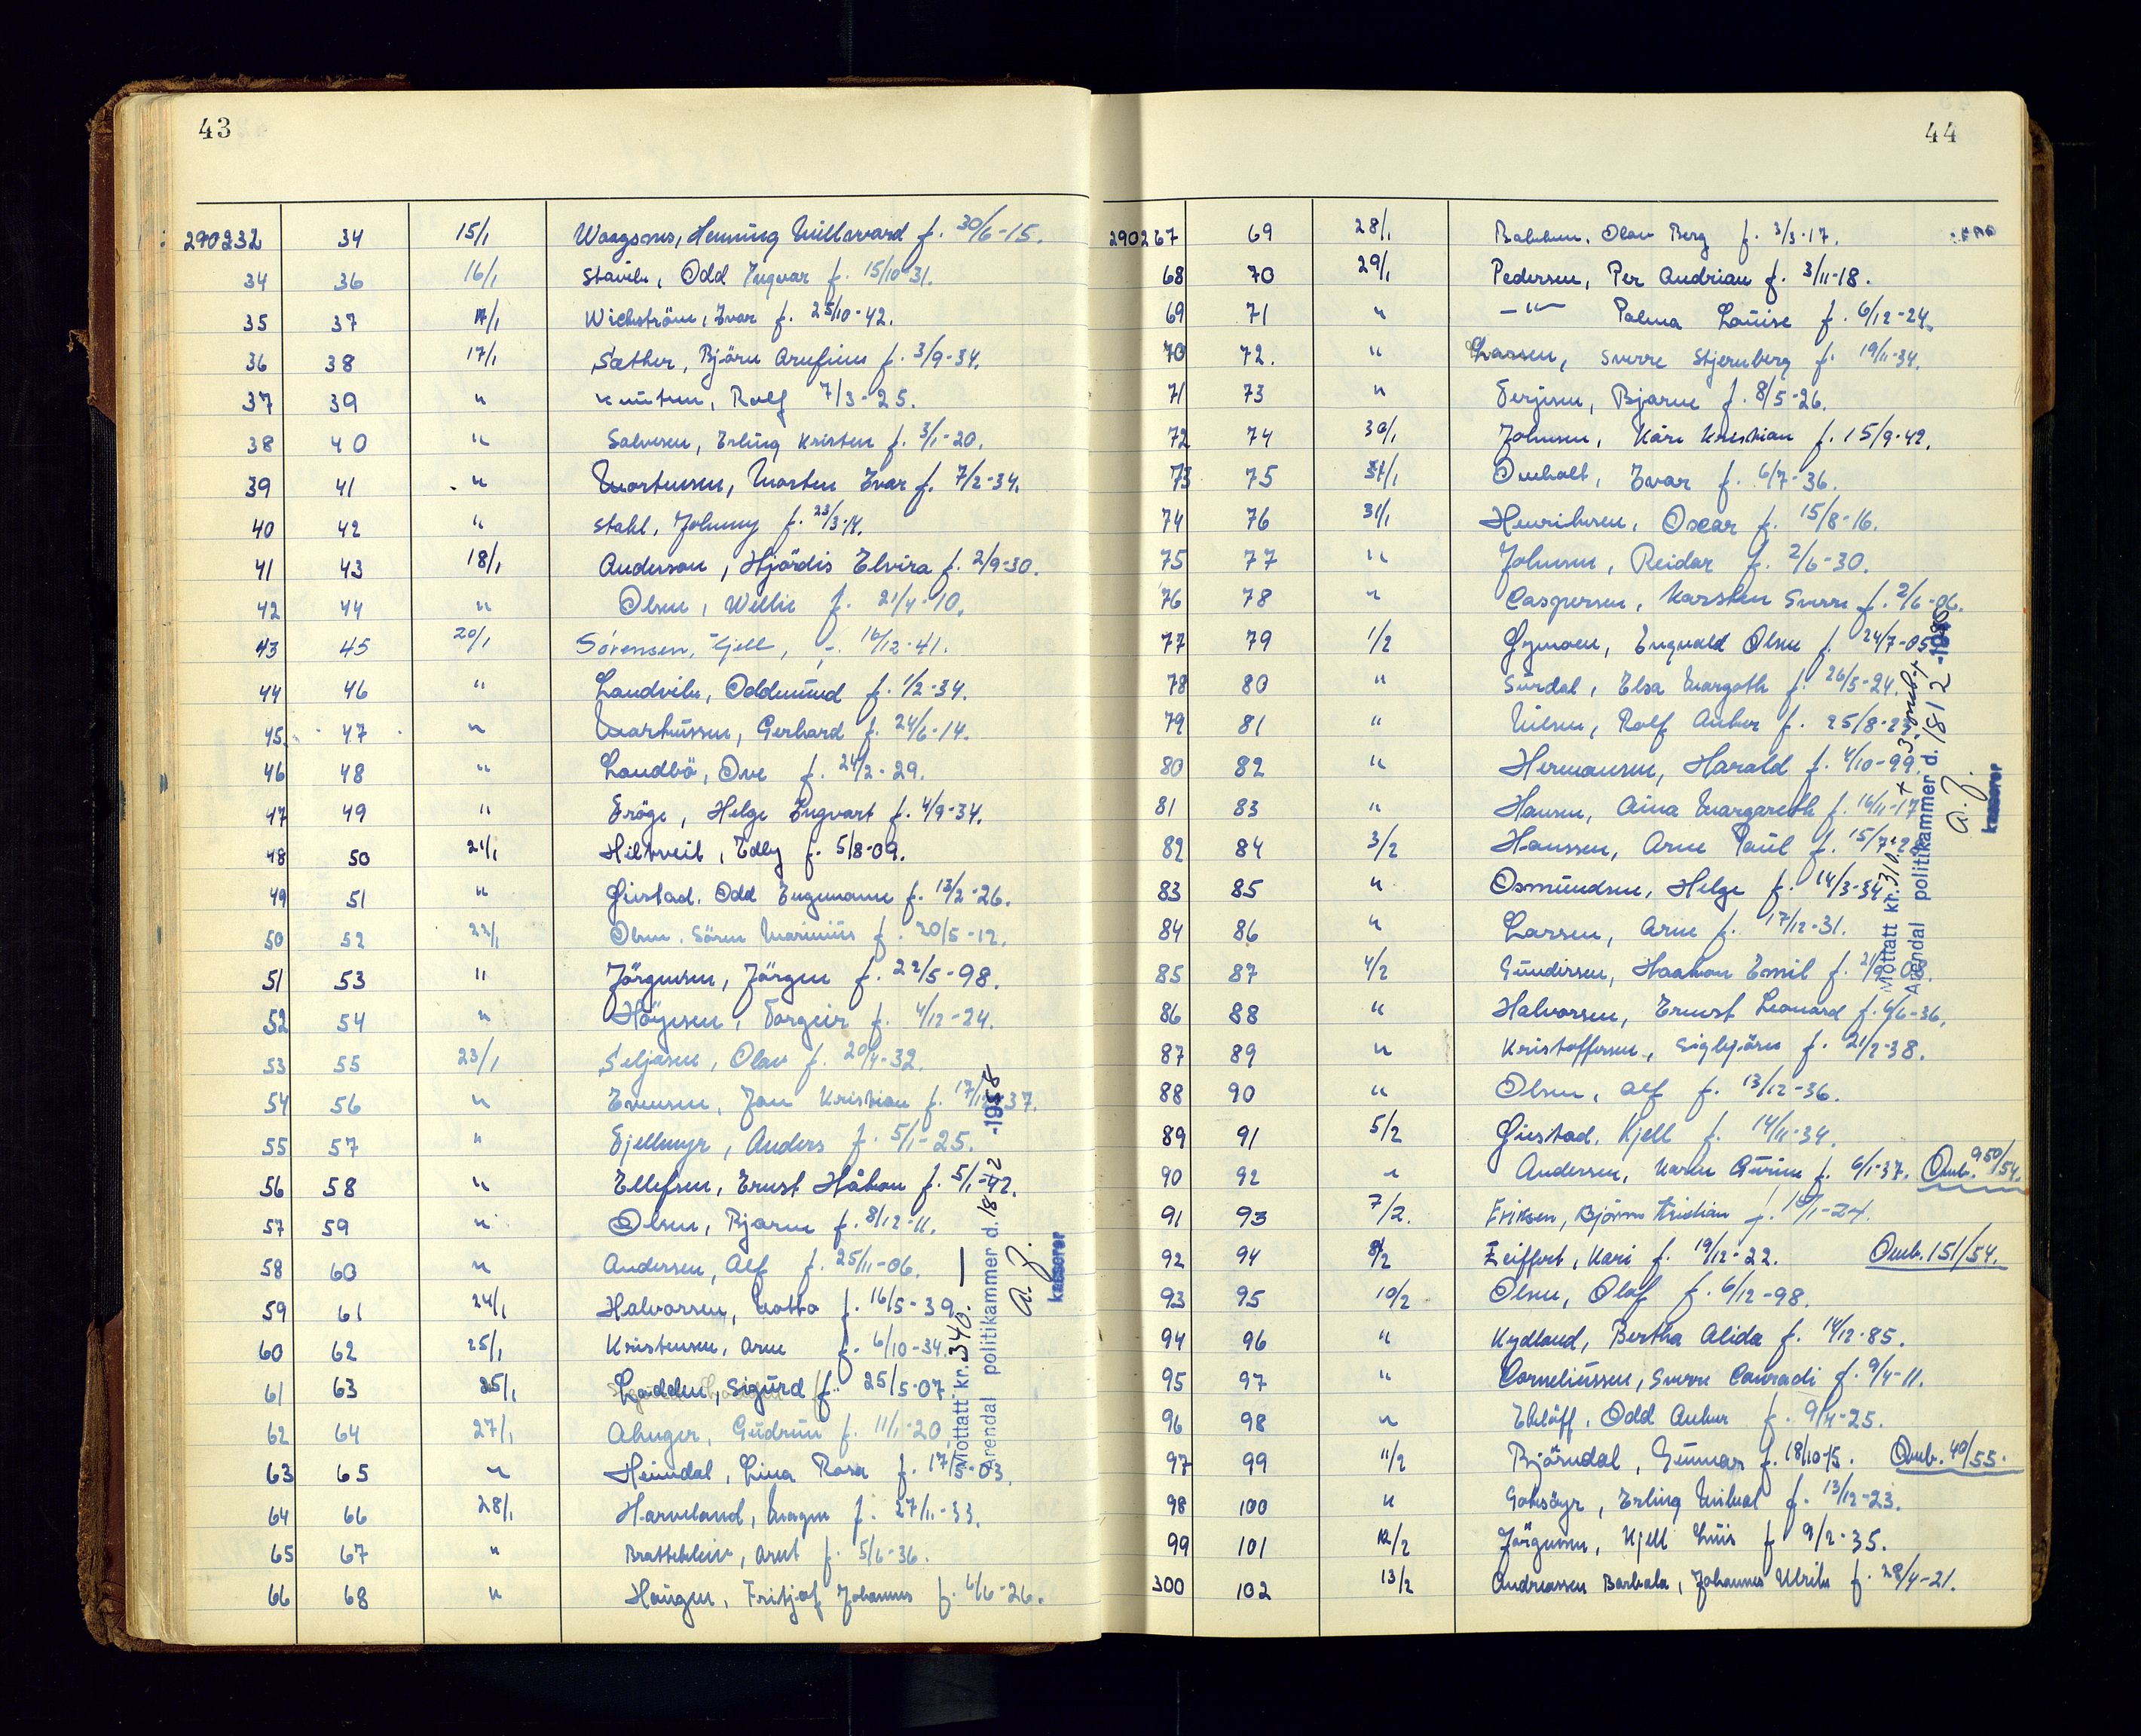 43
290232 34 15/1 Henning f. 30/6-15.
34 36 16/1 Odd Ingvar f. 15/10-31.
35 37 17/1 Wichström, Ivar f. 25/10-42.
36 38 17/1 Sæther, Björn Arnfinn f. 3/9-34.
37 39 " Knutsen, Rolf 7/3-25.
38 40 " Salvesen, Erling Kristen f. 3/1-20.
39 41 " Mortensen, Morten Ivar f. 7/2-34.
40 42 " Stahl, Johnny f. 23/3-14.
41 43 18/1 Anderson, Hjördis Elvira f. 2/9-30.
42 44 " Olsen, Willie f. 21/4-10.
43 45 20/1 Sörensen, Kjell, f. 16/12-41.
44 46 " Landvik, Oddmund f. 1/2-34.
45 47 " Markussen, Gerhard f. 24/6-14.
46 48 " Landbö, Ove f. 24/2-29.
47 49 " Fröge, Helge Ingvart f. 4/9-34.
48 50 21/1 Edly f. 5/8-09.
49 51 " Gustad, Odd Ingemann f. 13/2-26.
50 52 22/1 Olsen, Sören Marinius f. 20/5-12.
51 53 " Jörgensen, Jörgen f. 22/5-98.
52 54 " Höyesen, Torgeir f. 4/12-24.
53 55 23/1 Seljåsen, Olav f. 20/4-32.
54 56 " Evensen, Jan Kristian f. 17/12-37.
55 57 " Fjellmyr, Anders f. 5/1-25.
56 58 " Ellefsen, Ernst Håkon f. 5/1-42.
57 59 " Olsen, Bjarne f. 8/12-11.
58 60 " Andersen, Alf f. 25/11-06.
59 61 24/1 Halvorsen, f. 16/5-39
60 62 25/1 Kristensen, Arne f. 6/10-34.
61 63 25/1 Lødden, Sigurd f. 25/5-07.
62 64 27/1 Gudrun f. 11/1-20
63 65 " Heimdal, Lina Rosa f. 17/5-03.
64 66 28/1 Harveland, Magne f. 27/11-33.
65 67 " Brattekleiv, Arnt f. 5/6-36.
66 68 " Haugen, Fritjof Johannes f. 6/6-26.
Mottatt kr. 340.—
Arendal politikammer d. 18 2 -1958
A. J.
kasserer
44
290267 69 28/1 Bakken, Olav Berg f. 3/3-17.
68 70 29/1 Pedersen, Per Andrian f. 3/11-18.
69 71 " —"— Palma Louise f. 6/12-24.
70 72. " Larsen, Sverre Stjernberg f. 19/11-34.
71 73 " Terjesen, Bjarne f. 8/5-26.
72 74 30/1 Johnsen, Kåre Kristian f. 15/9-42.
73 75 31/1 Omholt, Ivar f. 6/7-36.
74 76 31/1 Henriksen, Oscar f. 15/8-16.
75 77 " Johnsen, Reidar f. 2/6-30.
76 78 " Caspersen, Karsten Sverre f. 2/6-06.
77 79 1/2 Gymoen, Ingvald Olsen f. 24/7-05
78 80 " Surdal, Elsa Margoth f. 26/5-24.
79 81 " Nilsen, Rolf Anker f. 25/8-
80 82 " Hermansen, Harald f. 4/10-99.
81 83 " Hansen, Aina Margareth f. 16/11-17
82 84 3/2 Hanssen, Arne Paul f. 15/7-
83 85 " Osmundsen, Helge f. 14/3-34
84 86 " Larsen, Arne f. 17/12-31.
85 87 4/2 Gundersen, Haakon Emil f.
86 88 " Halvorsen, Ernst Leonard f. 6/6-36.
87 89 " Kristoffersen, Sigbjörn f. 21/2-38.
88 90 " Olsen, Alf f. 13/12-36.
89 91 5/2 Gustad, Kjell f. 14/11-34.
90 92 " Andersen, Karen f. 6/1-37. Omb. 950/54.
91 93 7/2. Eriksen, Björn Kristian f. -24.
92 94 8/2 Zeiffert, Kari f. 19/12-22. Omb. 151/54.
93 95 10/2 Olsen, Olaf f. 6/12-98.
94 96 " Kydland, Bertha Alida f. 14/12-85.
95 97 " Corneliussen, Sverre Conradi f. 9/4-11.
96 98 " Ekelöff, Odd Anker f. 9/4-25.
97 99 11/2 Björndal, Gunnar f. 18/10-15. Omb. 40/55.
98 100 " Erling Mikal f. 13/12-23.
99 101 12/2 Jörgensen, Kjell f. 9/2-35.
300 102 13/2 Andreassen Barbala, Johannes Ulrik f. 28/4-21.
Mottatt kr. 310.
Arendal politikammer d. 18 12 -19
A. J.
kasserer